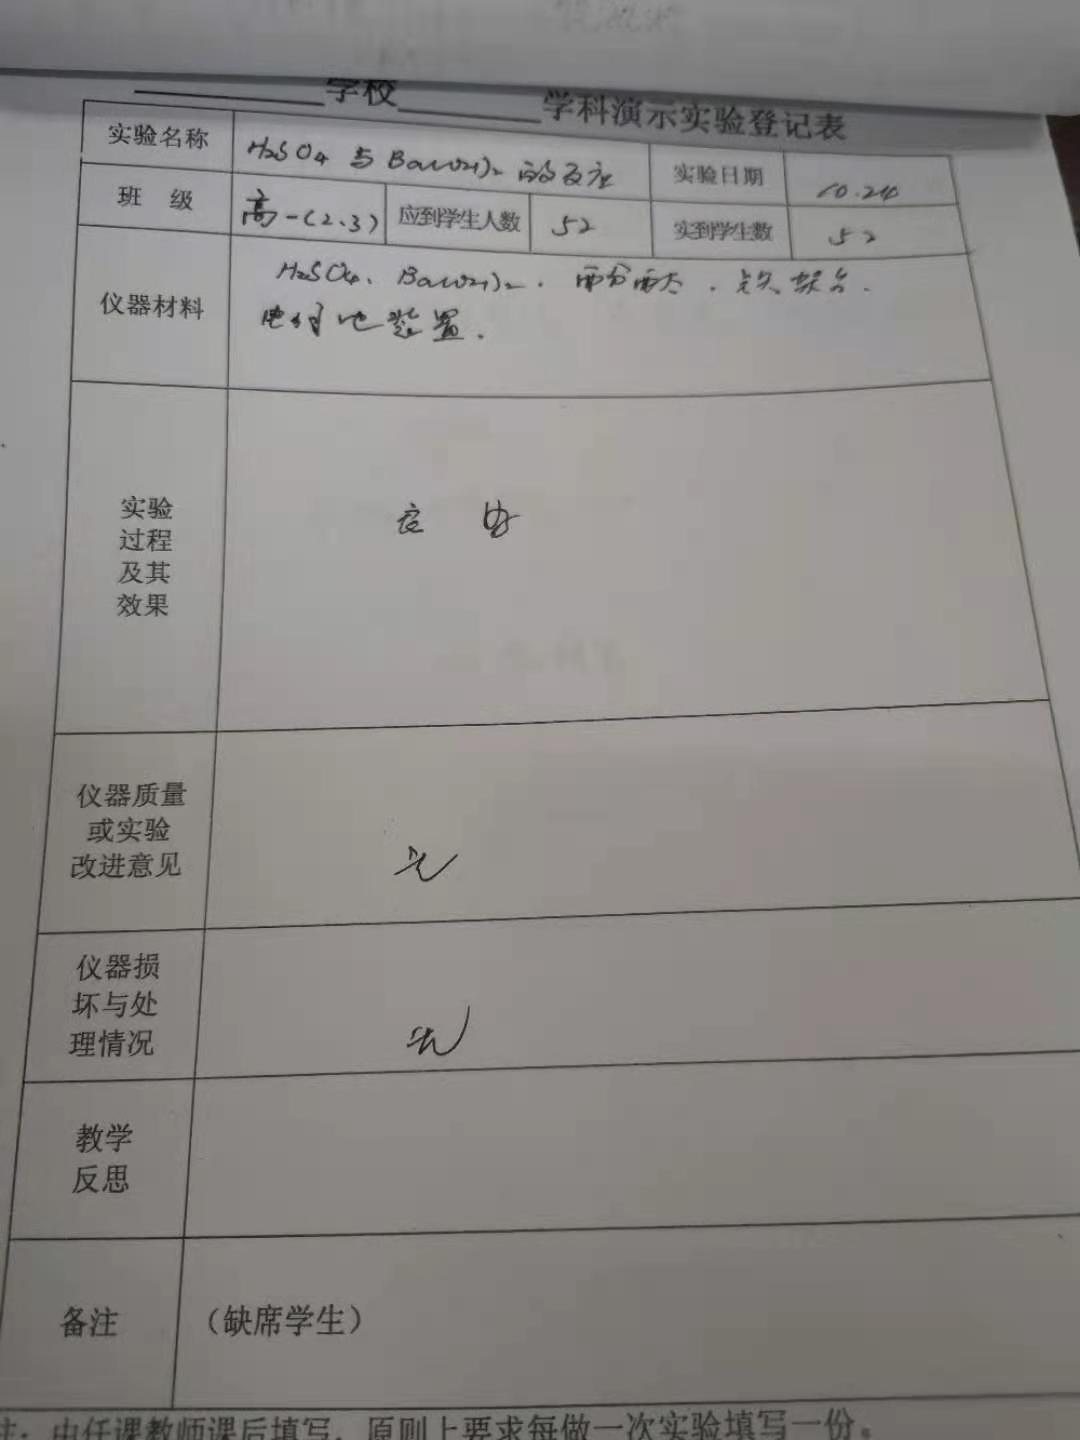 学校 学科演示实验登记表
实验名称 H₂SO₄ 与 Ba(OH)₂ 的反应 实验日期 10.24
班 级 高一(2.3) 应到学生人数 52 实到学生数 52
仪器材料 H₂SO₄、Ba(OH)₂、 铁架台、
装置.
实验
过程
及其
效果
良好
仪器质量
或实验
改进意见
无
仪器损
坏与处
理情况
无
教学
反思
备注 (缺席学生)
注：由任课教师课后填写，原则上要求每做一次实验填写一份。